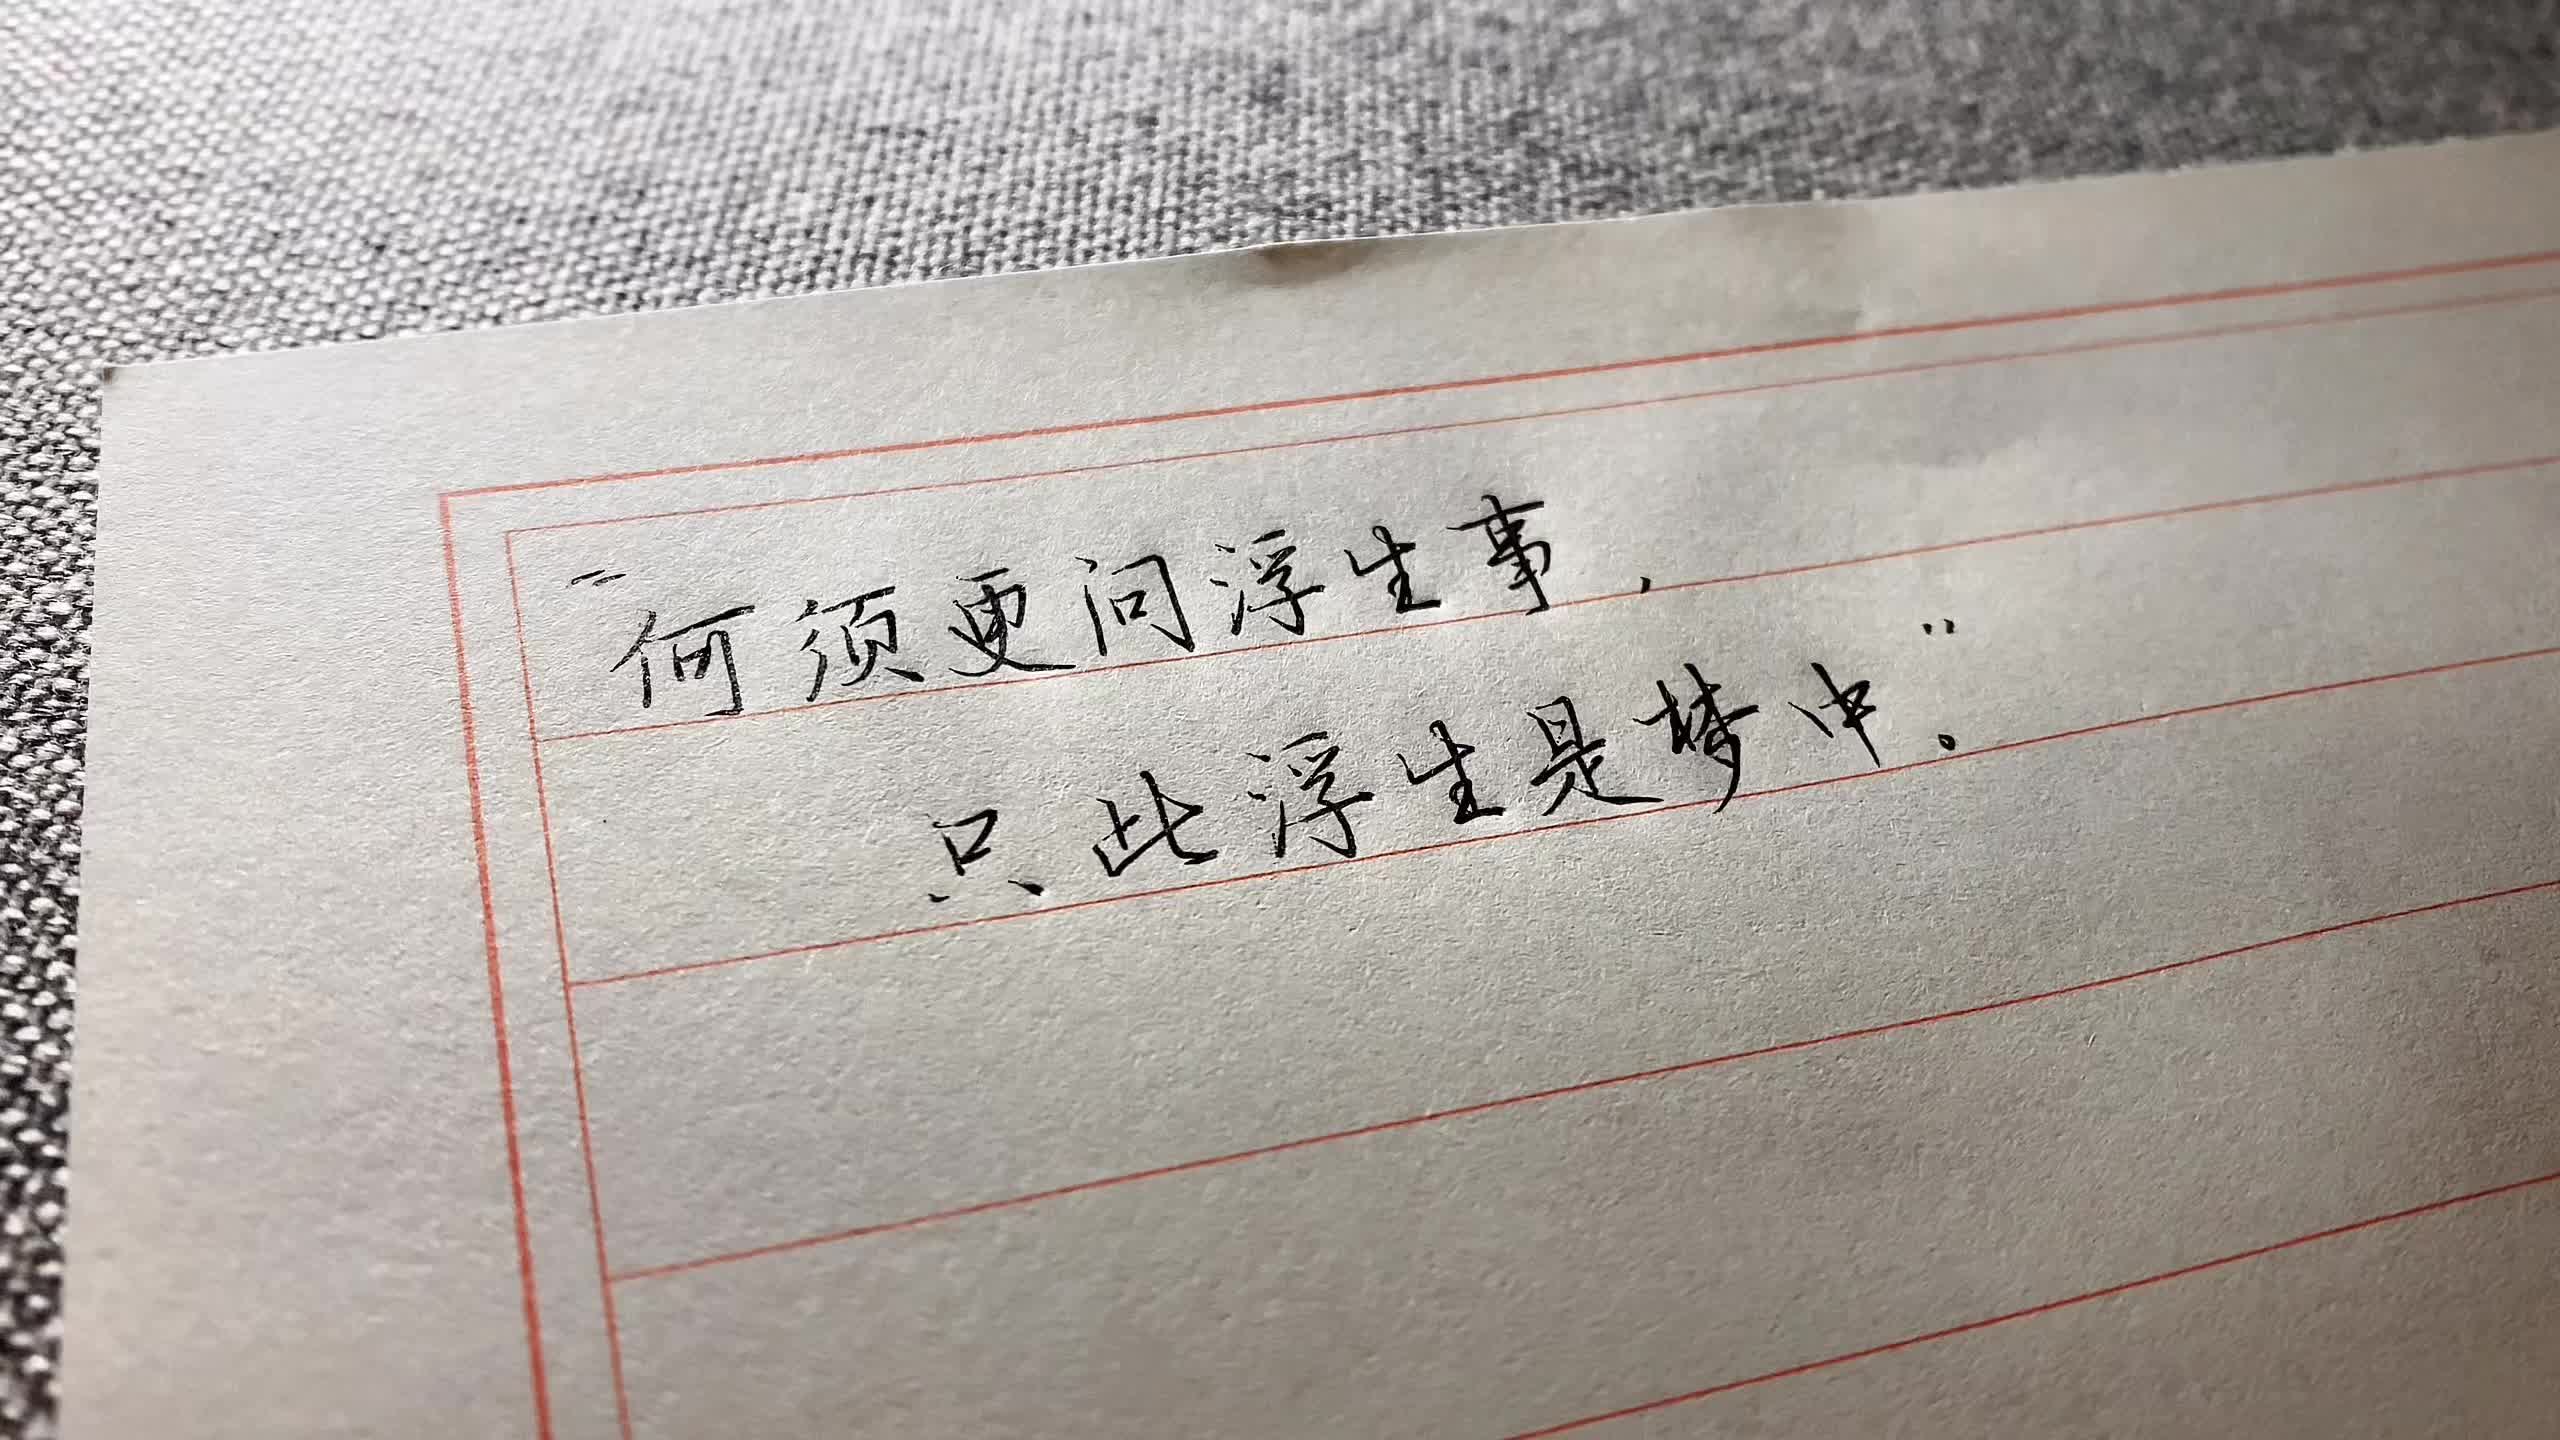 “何须更问浮生事，
只此浮生是梦中。”